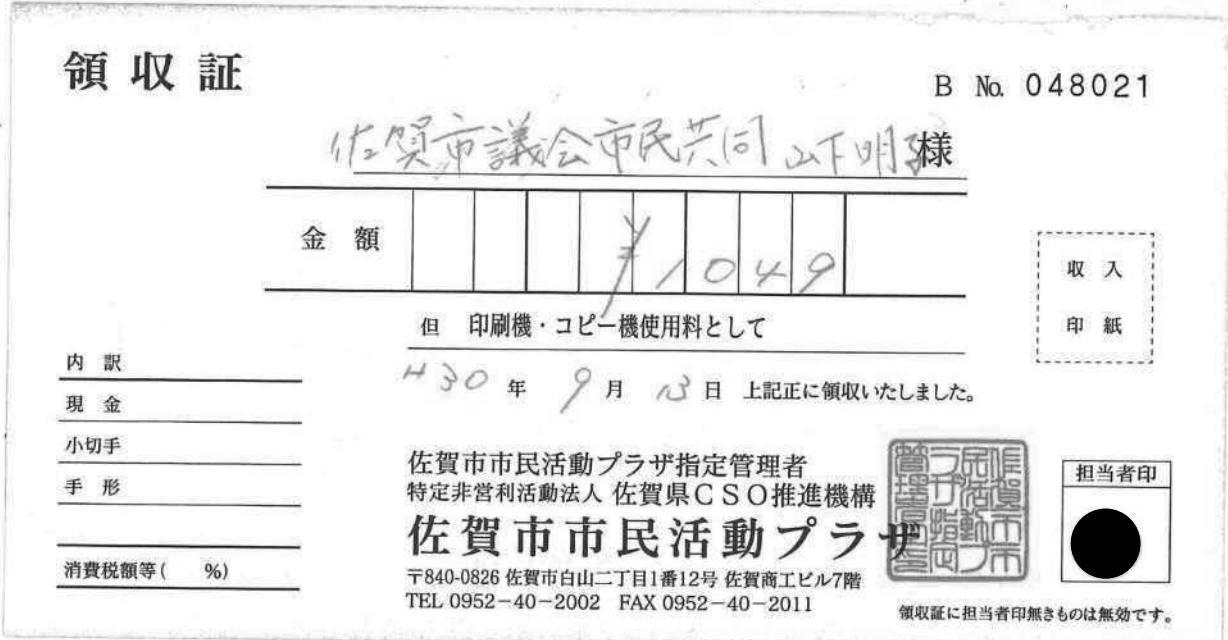 領収証
B No. 048021
佐賀市議会市民共同 山下明子様
金額 ¥1049
収入
印紙
但 印刷機・コピー機使用料として
内訳
H30年 9月 13日 上記正に領収いたしました。
現金
小切手
手形
消費税額等( %)
佐賀市市民活動プラザ指定管理者
特定非営利活動法人 佐賀県CSO推進機構
佐賀市市民活動プラザ
〒840-0826 佐賀市白山二丁目1番12号 佐賀商工ビル7階
TEL 0952-40-2002 FAX 0952-40-2011
担当者印
領収証に担当者印無きものは無効です。